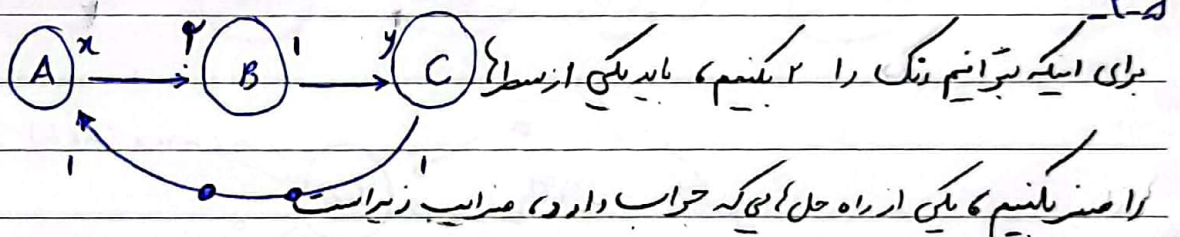 A x → ۲ B ۱ → y C برای اینکه بتوانیم رنک را ۲ بکنیم، باید یکی از سطرها
۱ ۱ را صفر بکنیم، یکی از راه حل هایی که جواب دارد، ضرایب زیر است